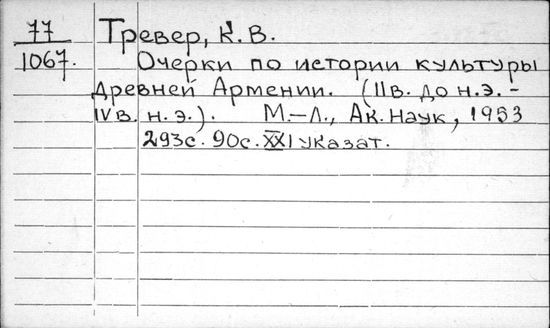 77 Тревер, К. В.
1067. Очерки по истории культуры
древней Армении. (II в. до н.э. -
IV в. н.э.). М.-Л., Ак. наук, 1953
293с. 90с. XXI указат.